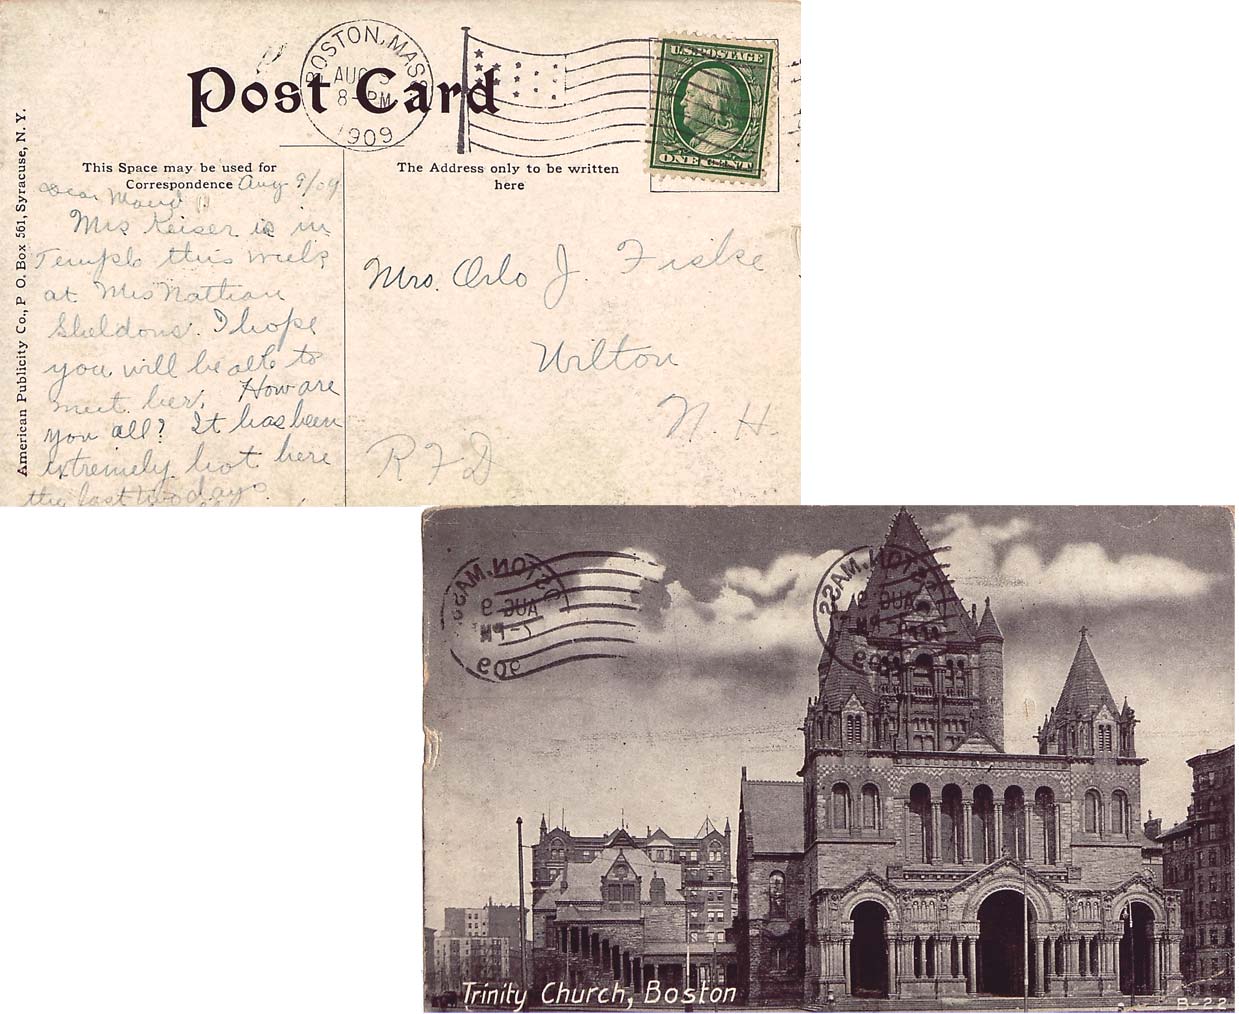 BOSTON, MASS.
AUG 9
8-PM
1909
Post Card
U.S. POSTAGE
ONE CENT
This Space may be used for
Correspondence
The Address only to be written
here
American Publicity Co., P. O. Box 561, Syracuse, N. Y.
Aug 9/09
Dear Maud
Mrs Keiser is in
Temple this week
at Mrs Nathan
Sheldons. I hope
you will be able to
meet her. How are
you all? It has been
extremely hot here
the last two days.
Mrs. Orlo J. Fiske
Wilton
N. H.
R F D
BOSTON, MASS.
AUG 9
7-PM
909
BOSTON, MASS.
AUG 9
PM
1909
Trinity Church, Boston
B-22